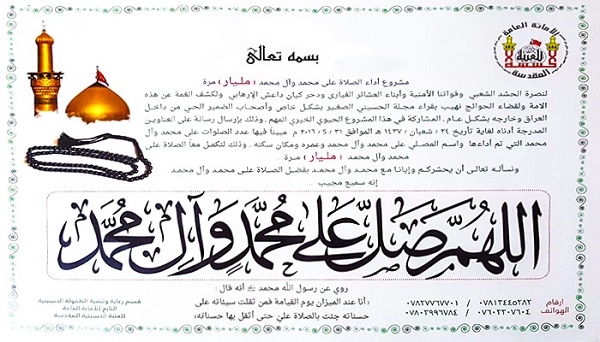 الأمانة العامة
للعتبة
الحسينية
المقدسة
بسمه تعالى
مشروع أداء الصلاة على محمد وآل محمد (مليار) مرة
لنصرة الحشد الشعبي وقواتنا الأمنية وأبناء العشائر الغيارى ودحر كيان داعش الإرهابي ولكشف الغمة عن هذه
الامة ولقضاء الحوائج نهيب بقراء مجلة الحسيني الصغير بشكل خاص وأصحاب الضمير الحي من داخل
العراق وخارجه بشكل عام، المشاركة في هذا المشروع الحيوي الخيري المهم، وذلك بإرسال رسالة على العناوين
المدرجة أدناه لغاية تأريخ ٢٤ / شعبان / ١٤٣٧ هـ الموافق ٣١ / ٥ / ٢٠١٦ م، مبيناً فيها عدد الصلوات على محمد وآل
محمد التي تم أداءها واسم المصلي على محمد وآل محمد وعمره ومكان سكنه. وذلك لتكمل معاً الصلاة على
محمد وآل محمد (مليار) مرة.
ونسأله تعالى أن يحشركم وإيانا مع محمد وآل محمد بفضل الصلاة على محمد وآل محمد
إنه سميع مجيب.
اللهم صل على محمد وآل محمد
روي عن رسول الله محمد ﷺ أنه قال:
(أنا عند الميزان يوم القيامة فمن ثقلت سيئاته على
حسناته جئت بالصلاة عليّ حتى أثقل بها حسناته)
ارقام
الهواتف
٠٧٨١٣٤٤٥٣٨٢ / ٠٧٨٢٧٧٦٧٧٠١
٠٧٦٠٢٣٠٧٦٠٤ / ٠٧٨٠٣٩٩٦٧٨٤
قسم رعاية وتنمية الطفولة الحسينية
التابع للأمانة العامة
للعتبة الحسينية المقدسة